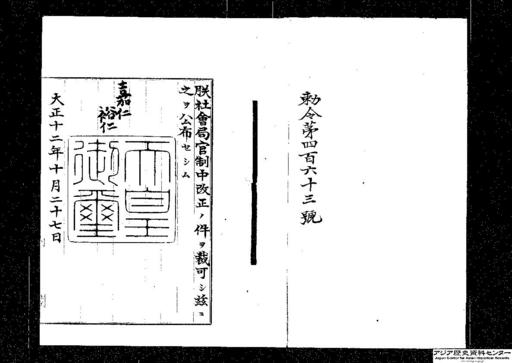 勅令第四百六十三號
朕社會局官制中改正ノ件ヲ裁可シ玆ニ
之ヲ公布セシム
嘉仁
裕仁
天皇
御璽
大正十二年十月二十七日
アジア歴史資料センター
Japan Center for Asian Historical Records